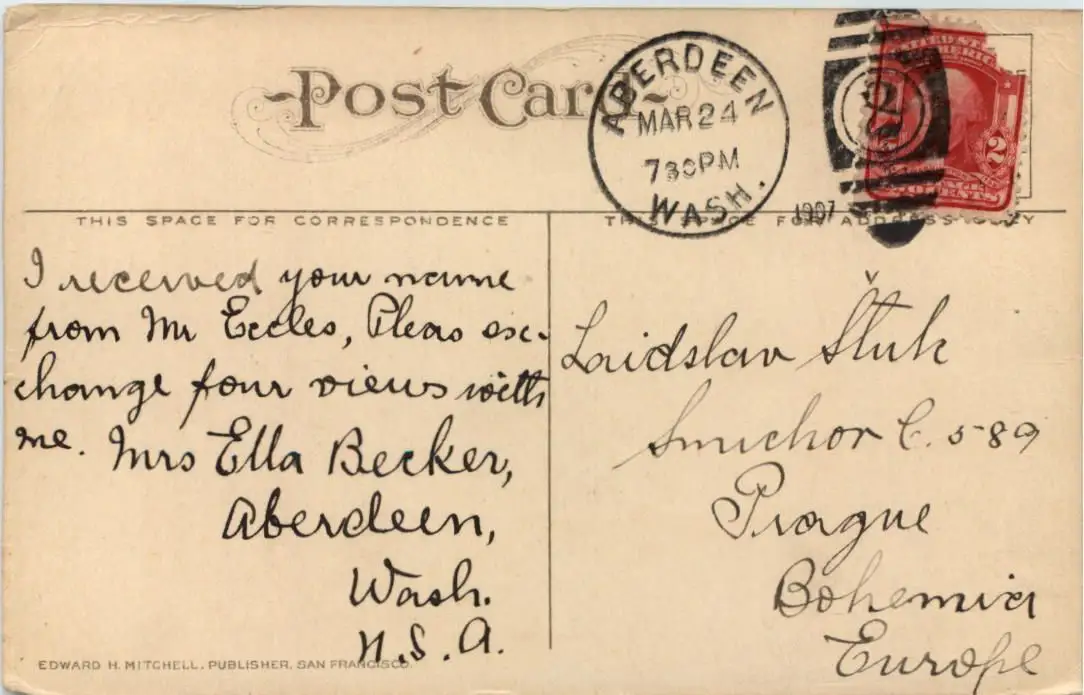 Post Card
ABERDEEN
MAR 24
730 PM
WASH.
1907
2
2
THIS SPACE FOR CORRESPONDENCE
THIS SPACE FOR ADDRESS ONLY
I received your name
from Mr Eccles, Pleas ex-
change four views with
me. Mrs Ella Becker,
Aberdeen,
Wash.
U.S.A.
Laidslav Štuk
Smichor C. 589
Prague
Bohemia
Europe
EDWARD H. MITCHELL, PUBLISHER, SAN FRANCISCO.